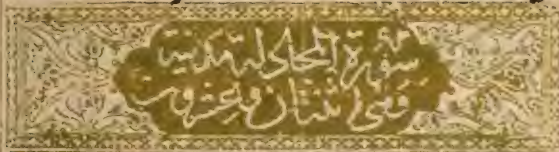 سورة المجادلة مدنية
وهي ثنتان وعشروت